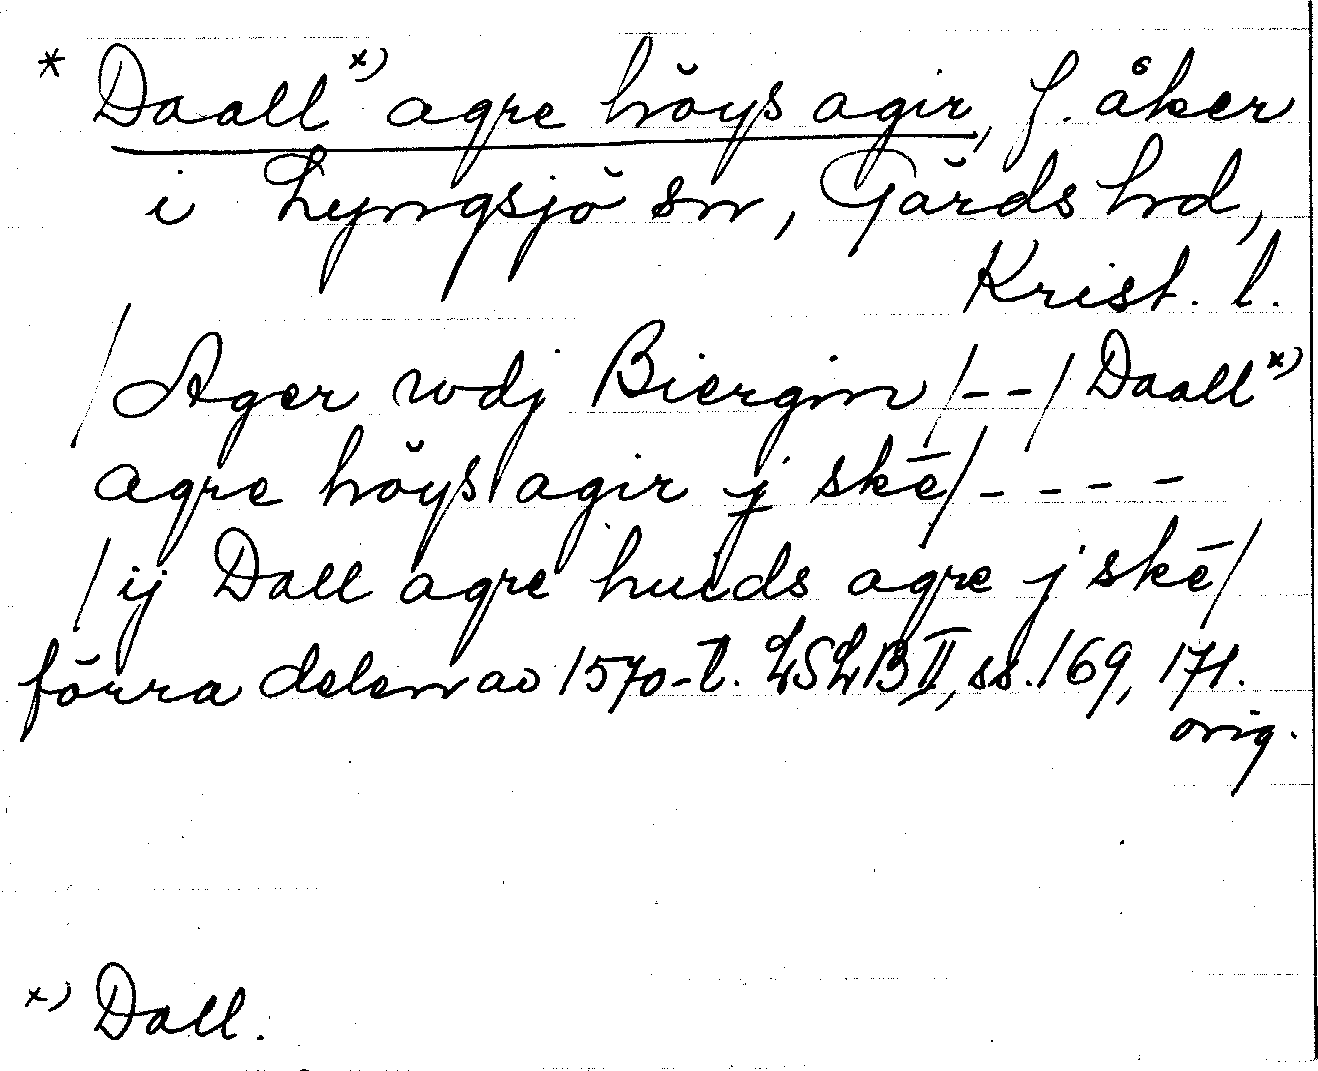 * Daall x) agre höys agir, f. åker
i Lyngsjö sn, Gärds hd,
Krist. l.
/Ager wdj Biergin/--/Daall x)
agre höys agir j skē/----
/ij Dall agre huids agre j skē/
förra delen av 1570-t. LSLB II, ss. 169, 171.
orig.
x) Dall.